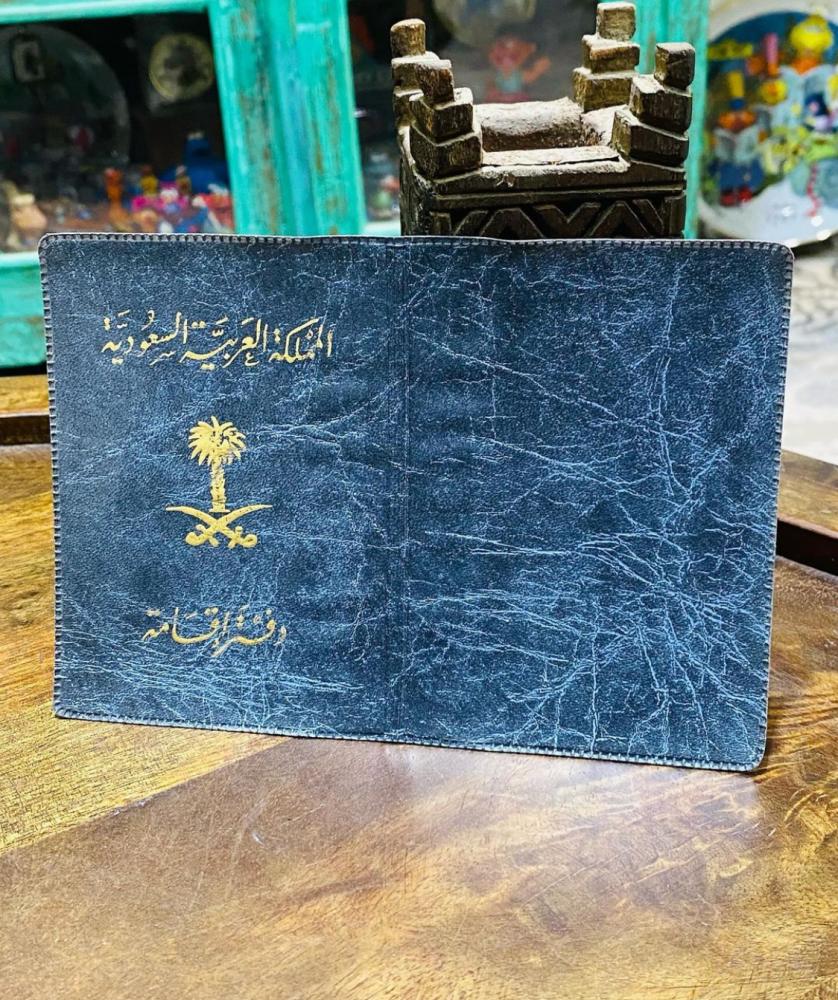 المَمْلكة العَربيَّة السعُوديَّة
دفتر إقامة